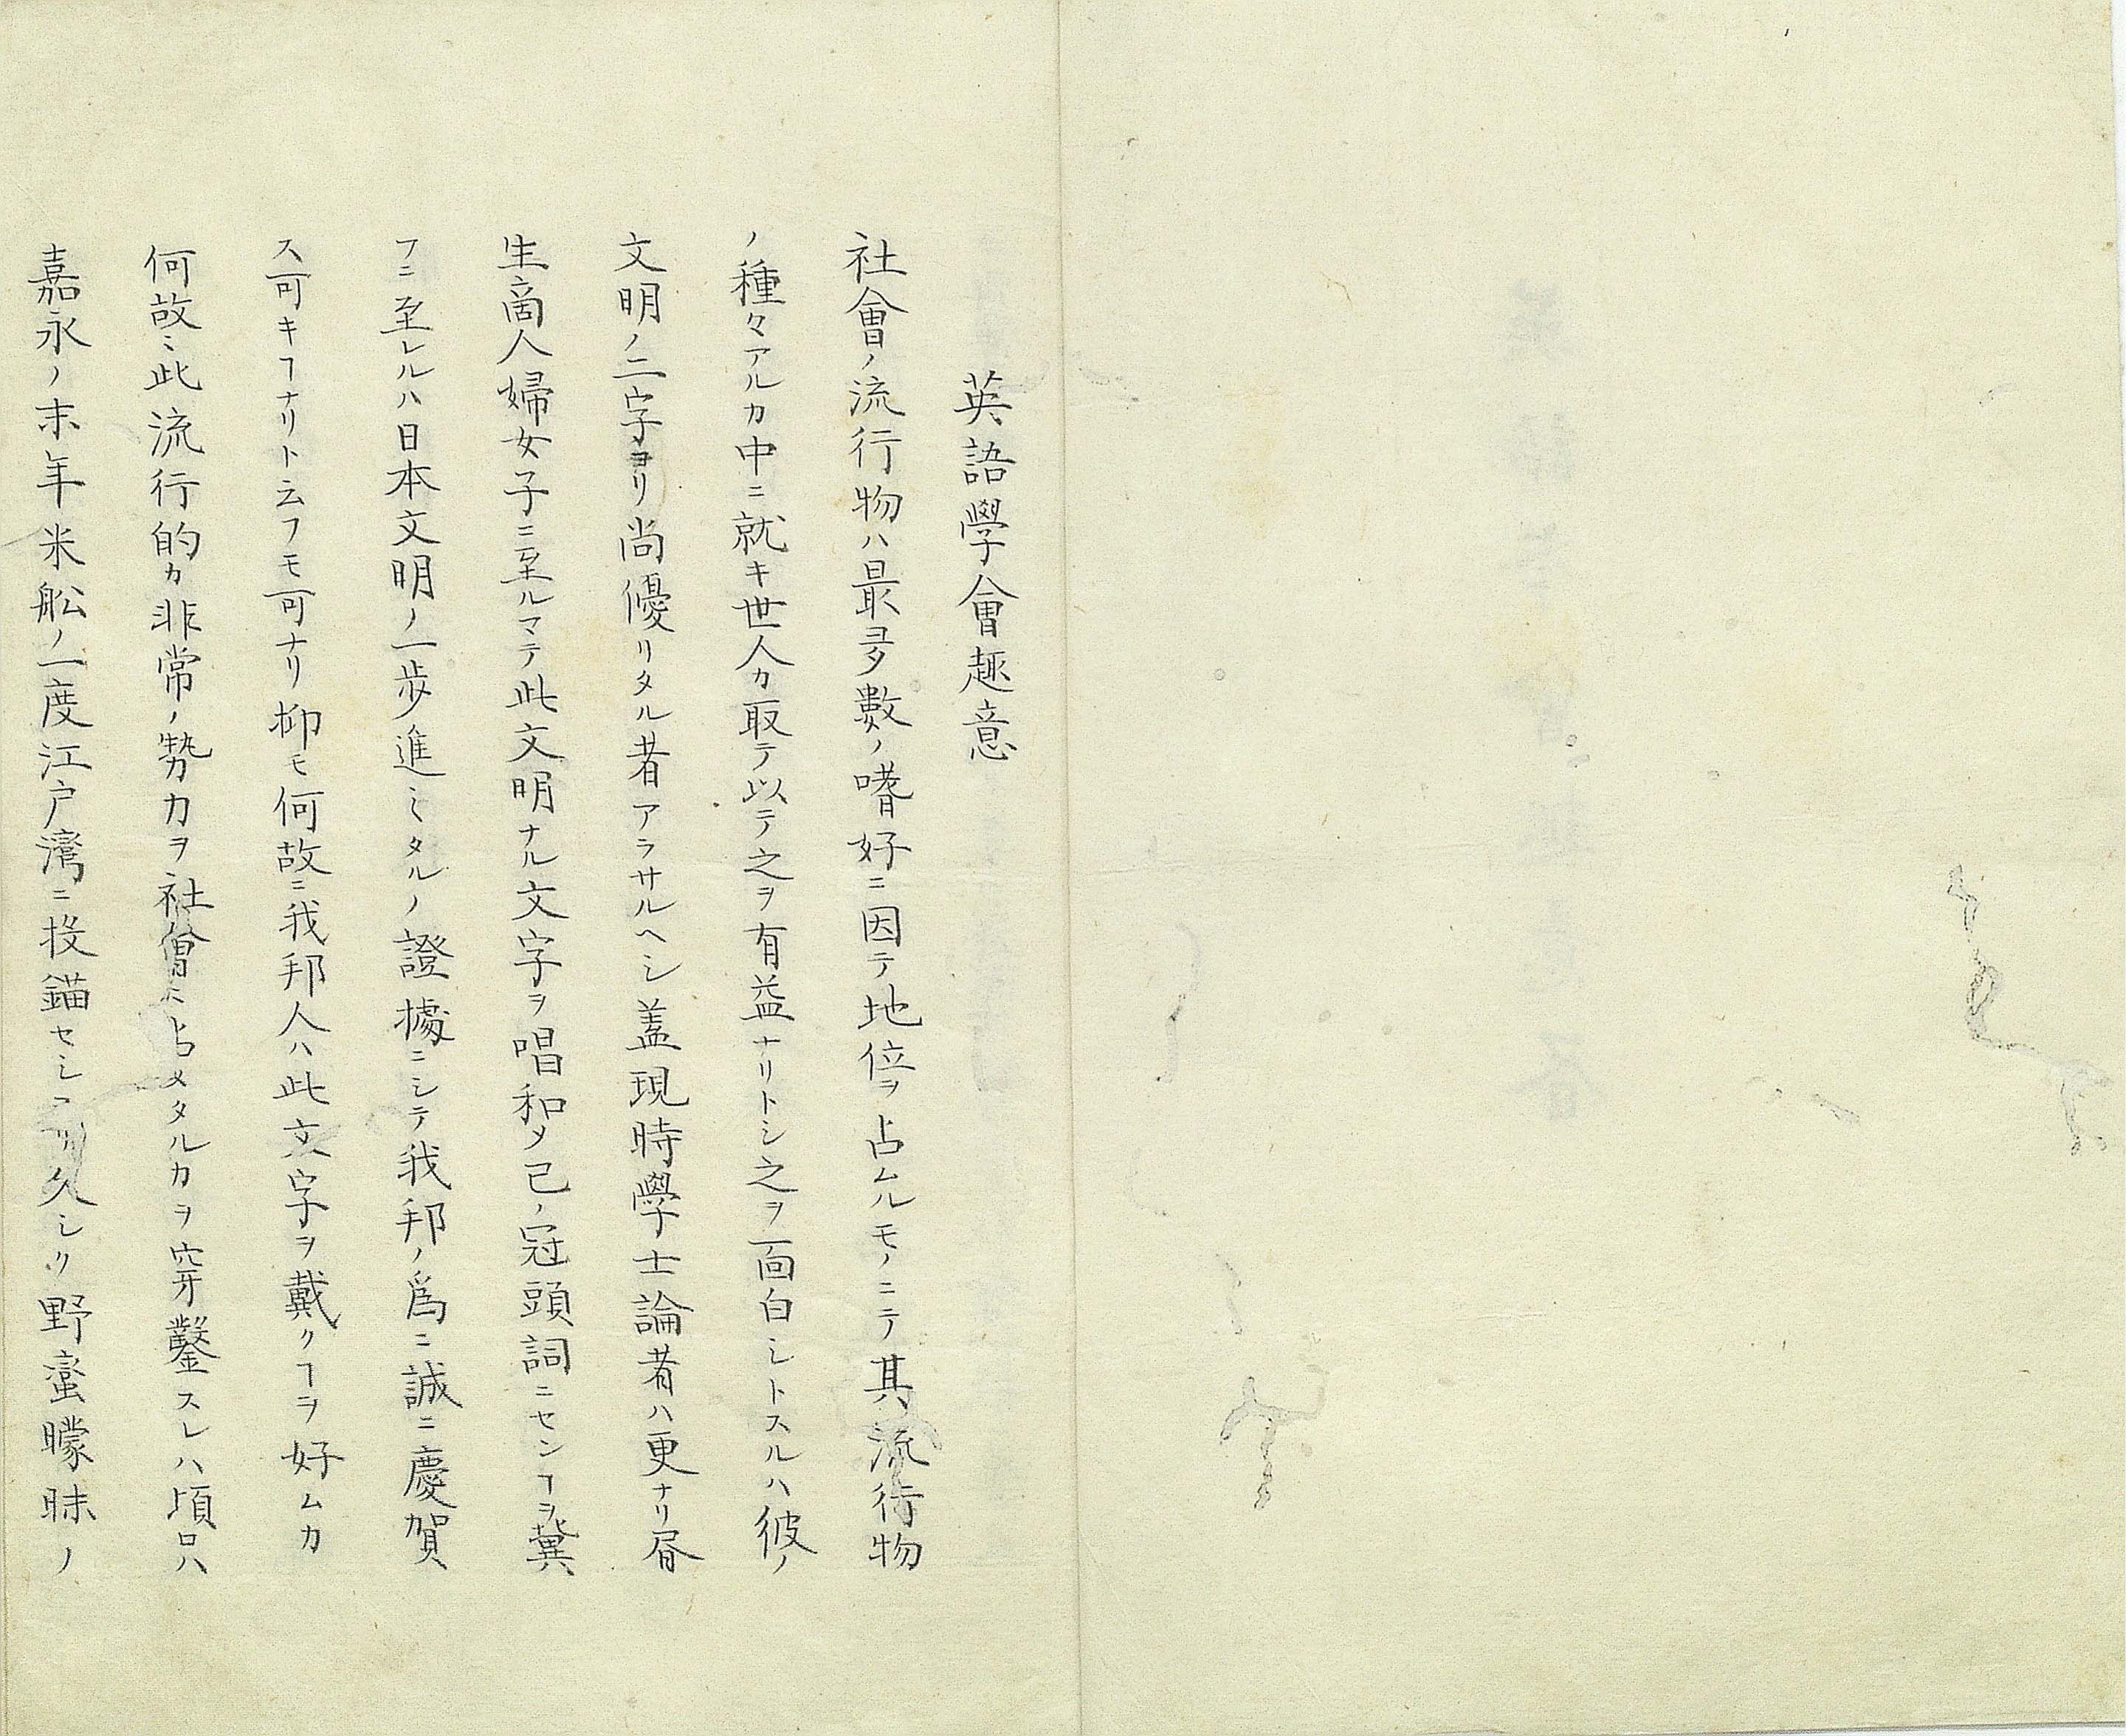 英語學會趣意
社會ノ流行物ハ最多數ノ嗜好ニ因テ地位ヲ占ムルモノニテ其流行物
ノ種々アルカ中ニ就キ世人カ取テ以テ之ヲ有益ナリトシ之ヲ面白シトスルハ彼ノ
文明ノ二字ヨリ尚優リタル者アラサルヘシ蓋現時學士論者ハ更ナリ
生商人婦女子ニ至ルマテ此文明ナル文字ヲ唱和〆己ノ冠頭詞ニセンヿヲ冀
フニ至レルハ日本文明ノ一歩進ミタルノ證據ニシテ我邦ノ爲ニ誠ニ慶賀
ス可キヿナリト云フモ可ナリ抑モ何故ニ我邦人ハ此文字ヲ戴クヿヲ好ムカ
何故ニ此流行的カ非常ノ勢力ヲ社會ニ占メタルカヲ穿鑿スレハ頃ロハ
嘉永ノ末年米舩ノ一度江戸灣ニ投錨セシヨリ久シク野蠻曚昧ノ